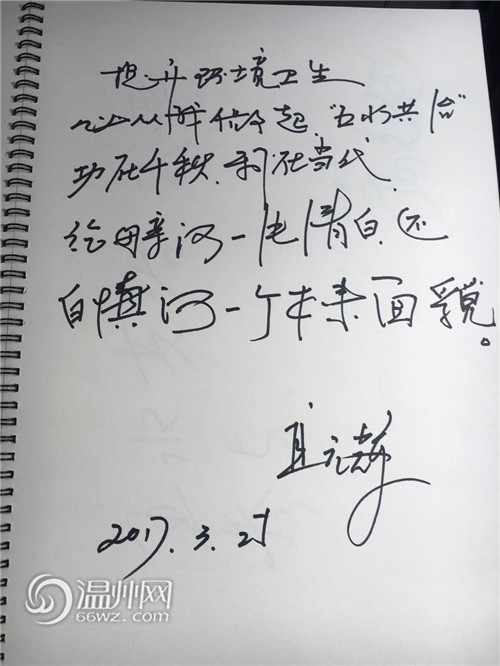 提升环境卫生
必从群众起，"五水共治"
功在千秋，利在当代，
给母亲河一片清白，还
白慎河一个本来面貌。
2017.3.25
温州网
66WZ.COM